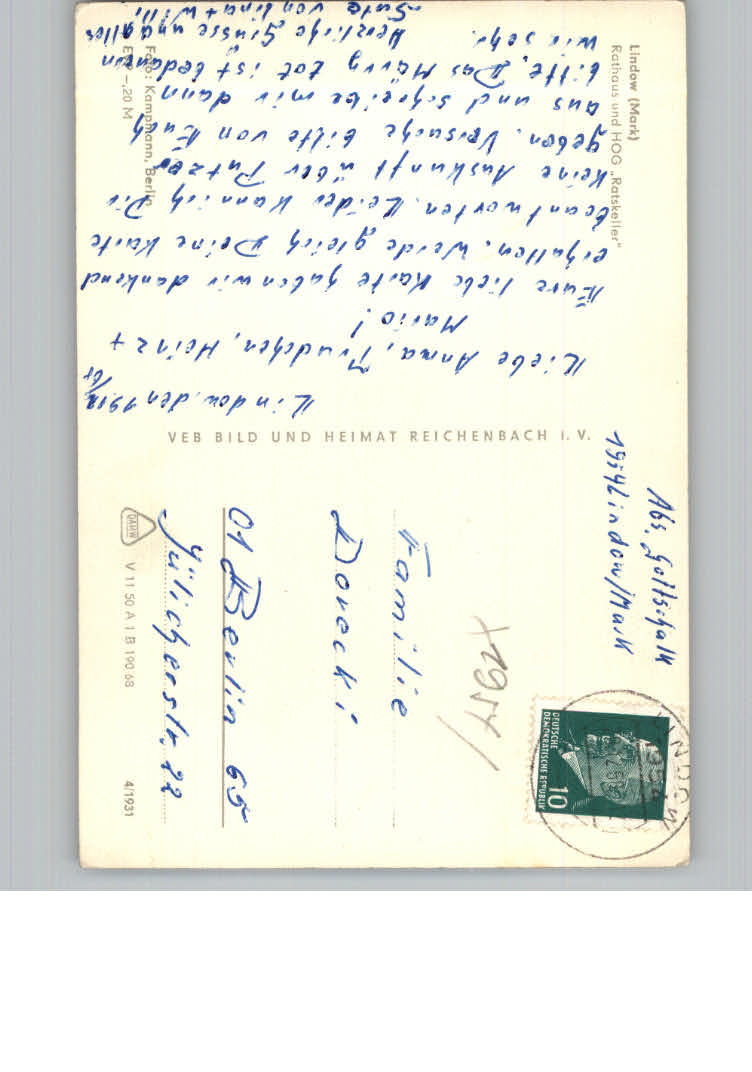 Lindow (Mark)
Rathaus und HOG „Ratskeller"
Foto: Kampmann, Berlin
EVP -,20 M
Lindow, den
Liebe Anna, Trudchen, Heinz +
Mario!
Eure liebe Karte haben wir dankend
erhalten. Werde gleich Deine Karte
beantworten. Leider kann ich Dir
keine Auskunft über Putzer
geben. Versuche bitte von Euch
aus und schreibe mir dann
bitte. Das Harry tot ist bedauern
wir sehr.
Herzliche Grüsse und alles
Gute von Lina + Willi
VEB BILD UND HEIMAT REICHENBACH I. V.
Abs. Gottschalk
1954 Lindow/Mark
DEUTSCHE
DEMOKRATISCHE REPUBLIK
10
LINDOW
1954
(1954)
Familie
Dorecki
01 Berlin 65
Jülicherstr. 22
DAMW
V 11 50 A 1 B 190 68
4/1931